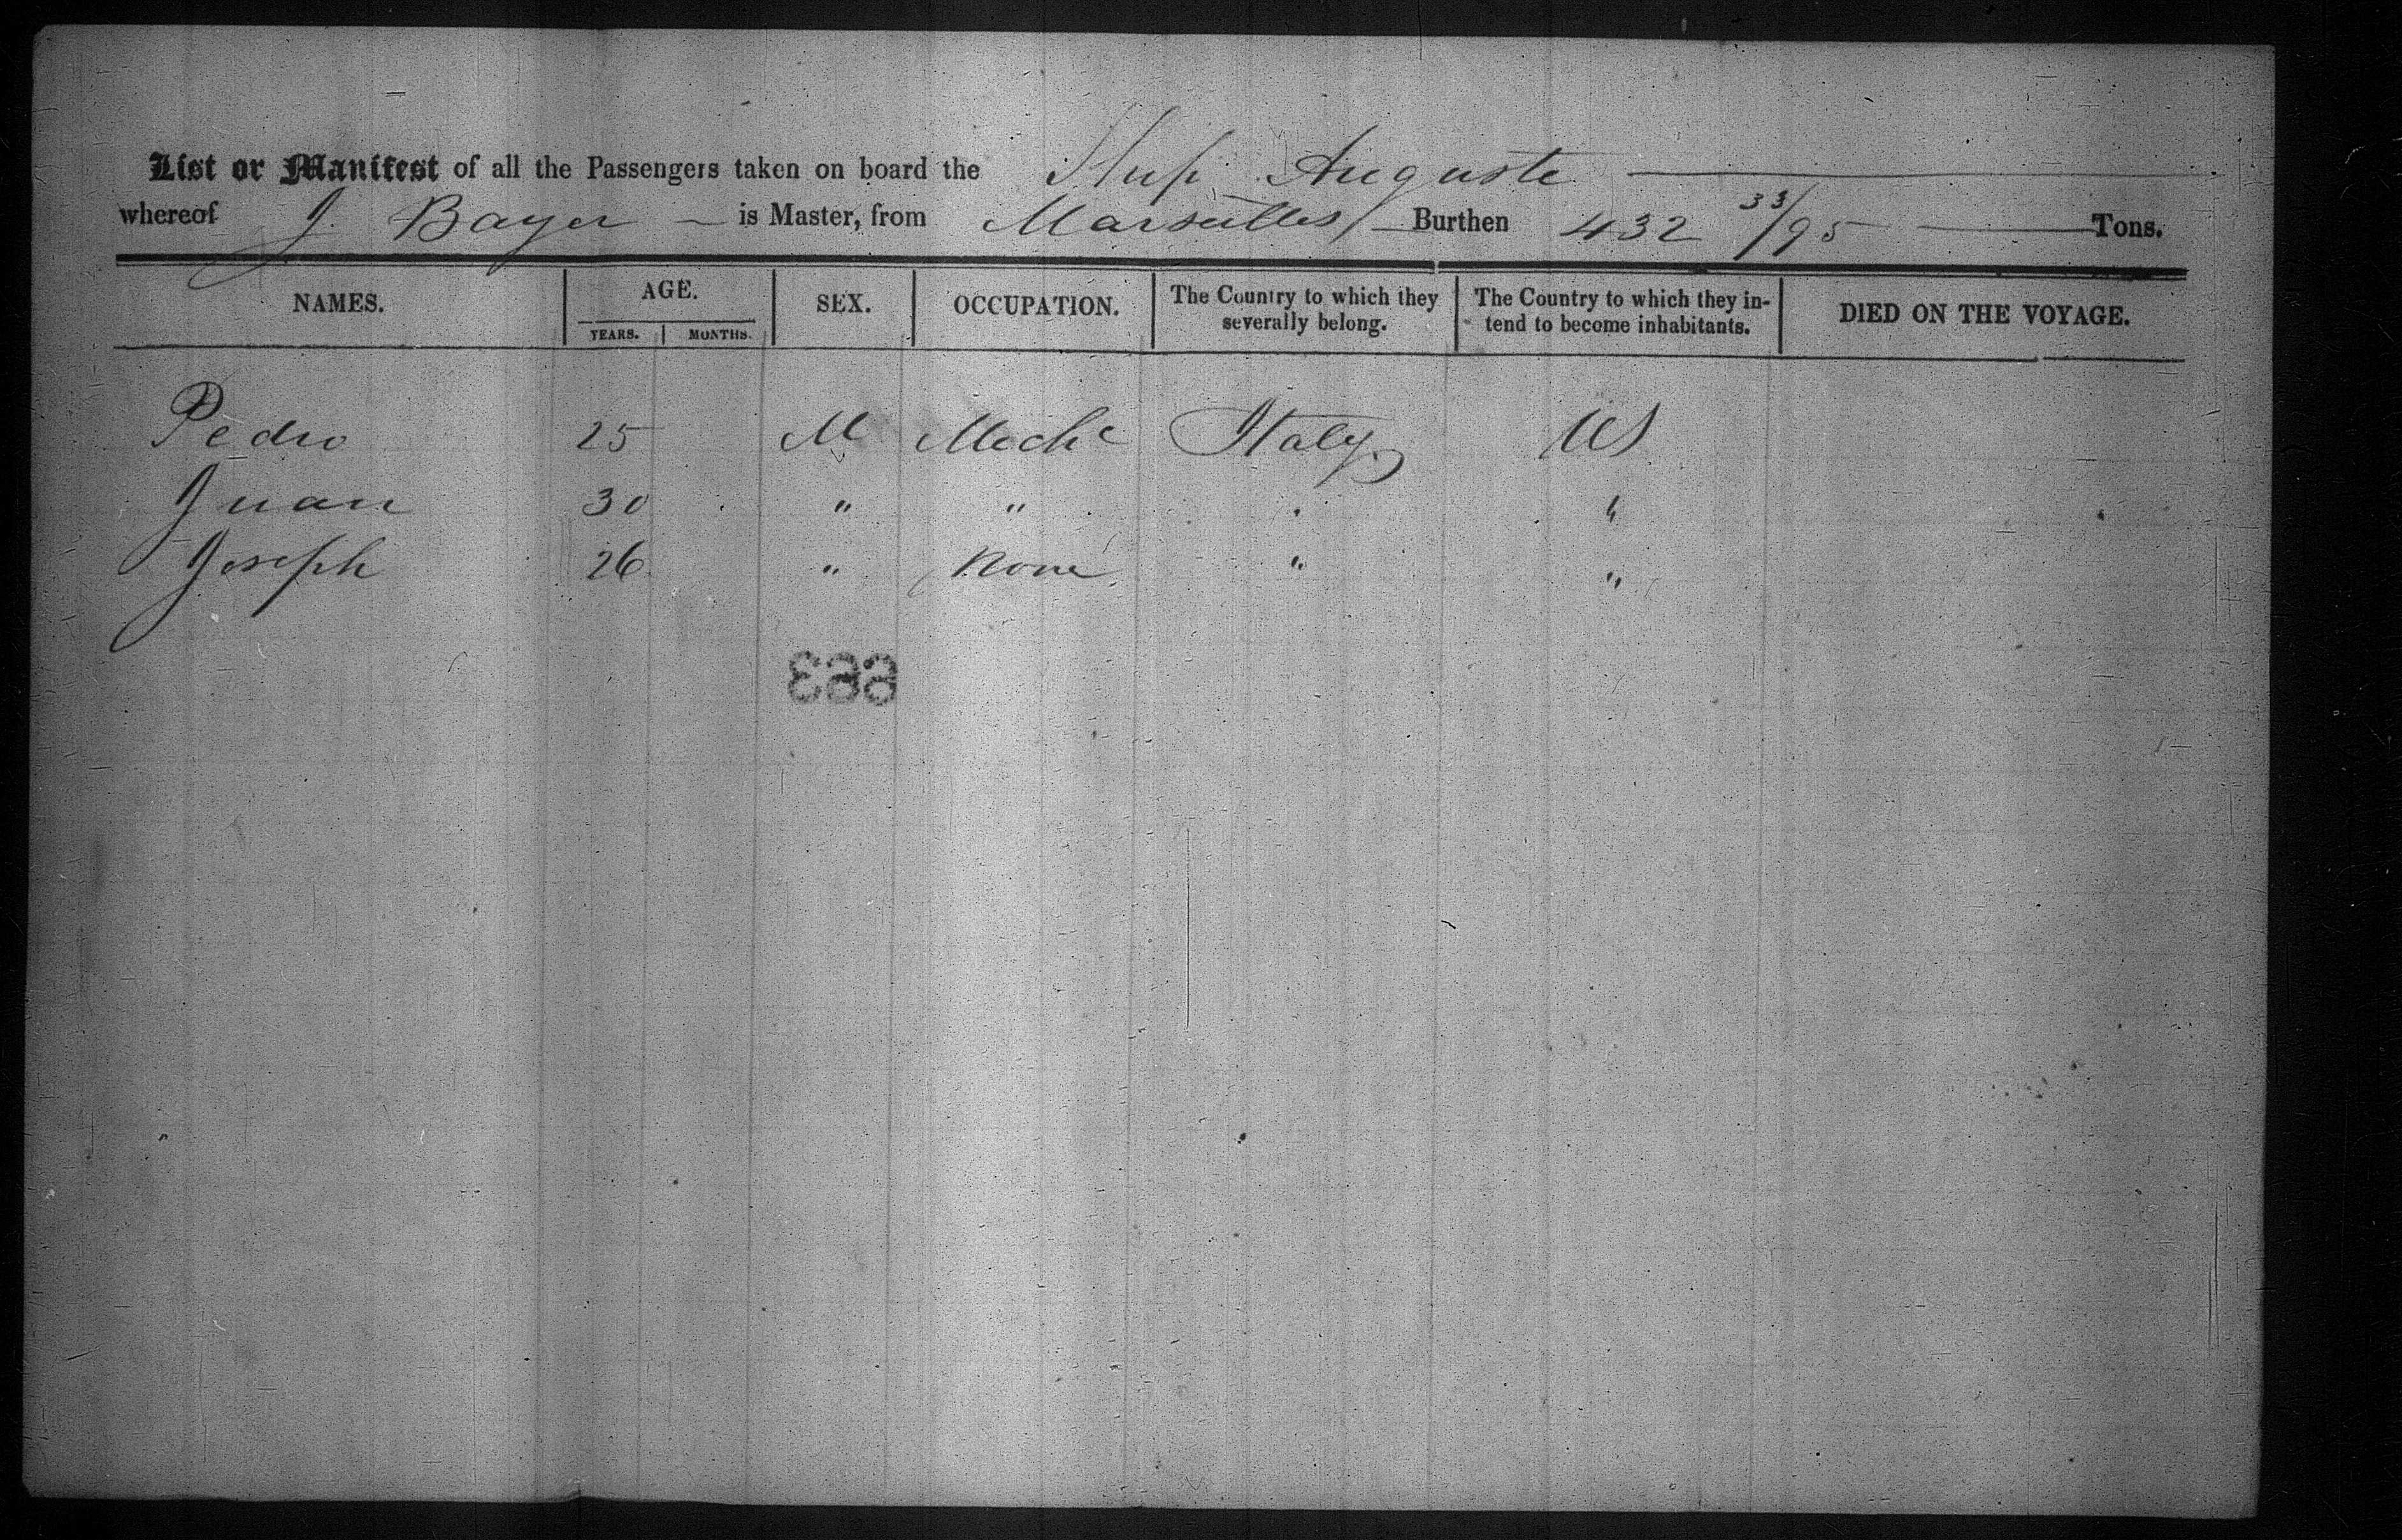 List or Manifest of all the Passengers taken on board the Ship Auguste
whereof J. Bayer is Master, from Marseilles Burthen 432 33/95 Tons.
NAMES. AGE. YEARS. MONTHS. SEX. OCCUPATION. The Country to which they severally belong. The Country to which they intend to become inhabitants. DIED ON THE VOYAGE.
Pedro 25 M Mechc Italy US
Juan 30 " " " "
Joseph 26 " None " "
663